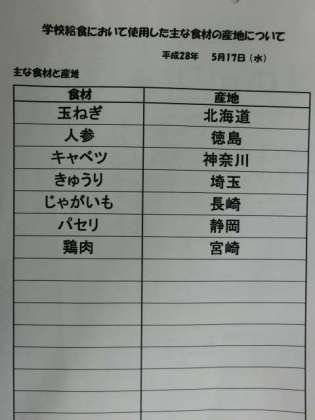 学校給食において使用した主な食材の産地について
平成28年 5月17日(水)
主な食材と産地
食材 産地
玉ねぎ 北海道
人参 徳島
キャベツ 神奈川
きゅうり 埼玉
じゃがいも 長崎
パセリ 静岡
鶏肉 宮崎